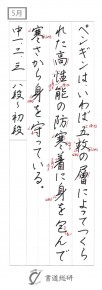 5月
ペンギンはいわば五枚の層によってつくら
れた高性能の防寒着に身を包んで
寒さから身を守っている。
中一二三　八段〜初段
書道総研